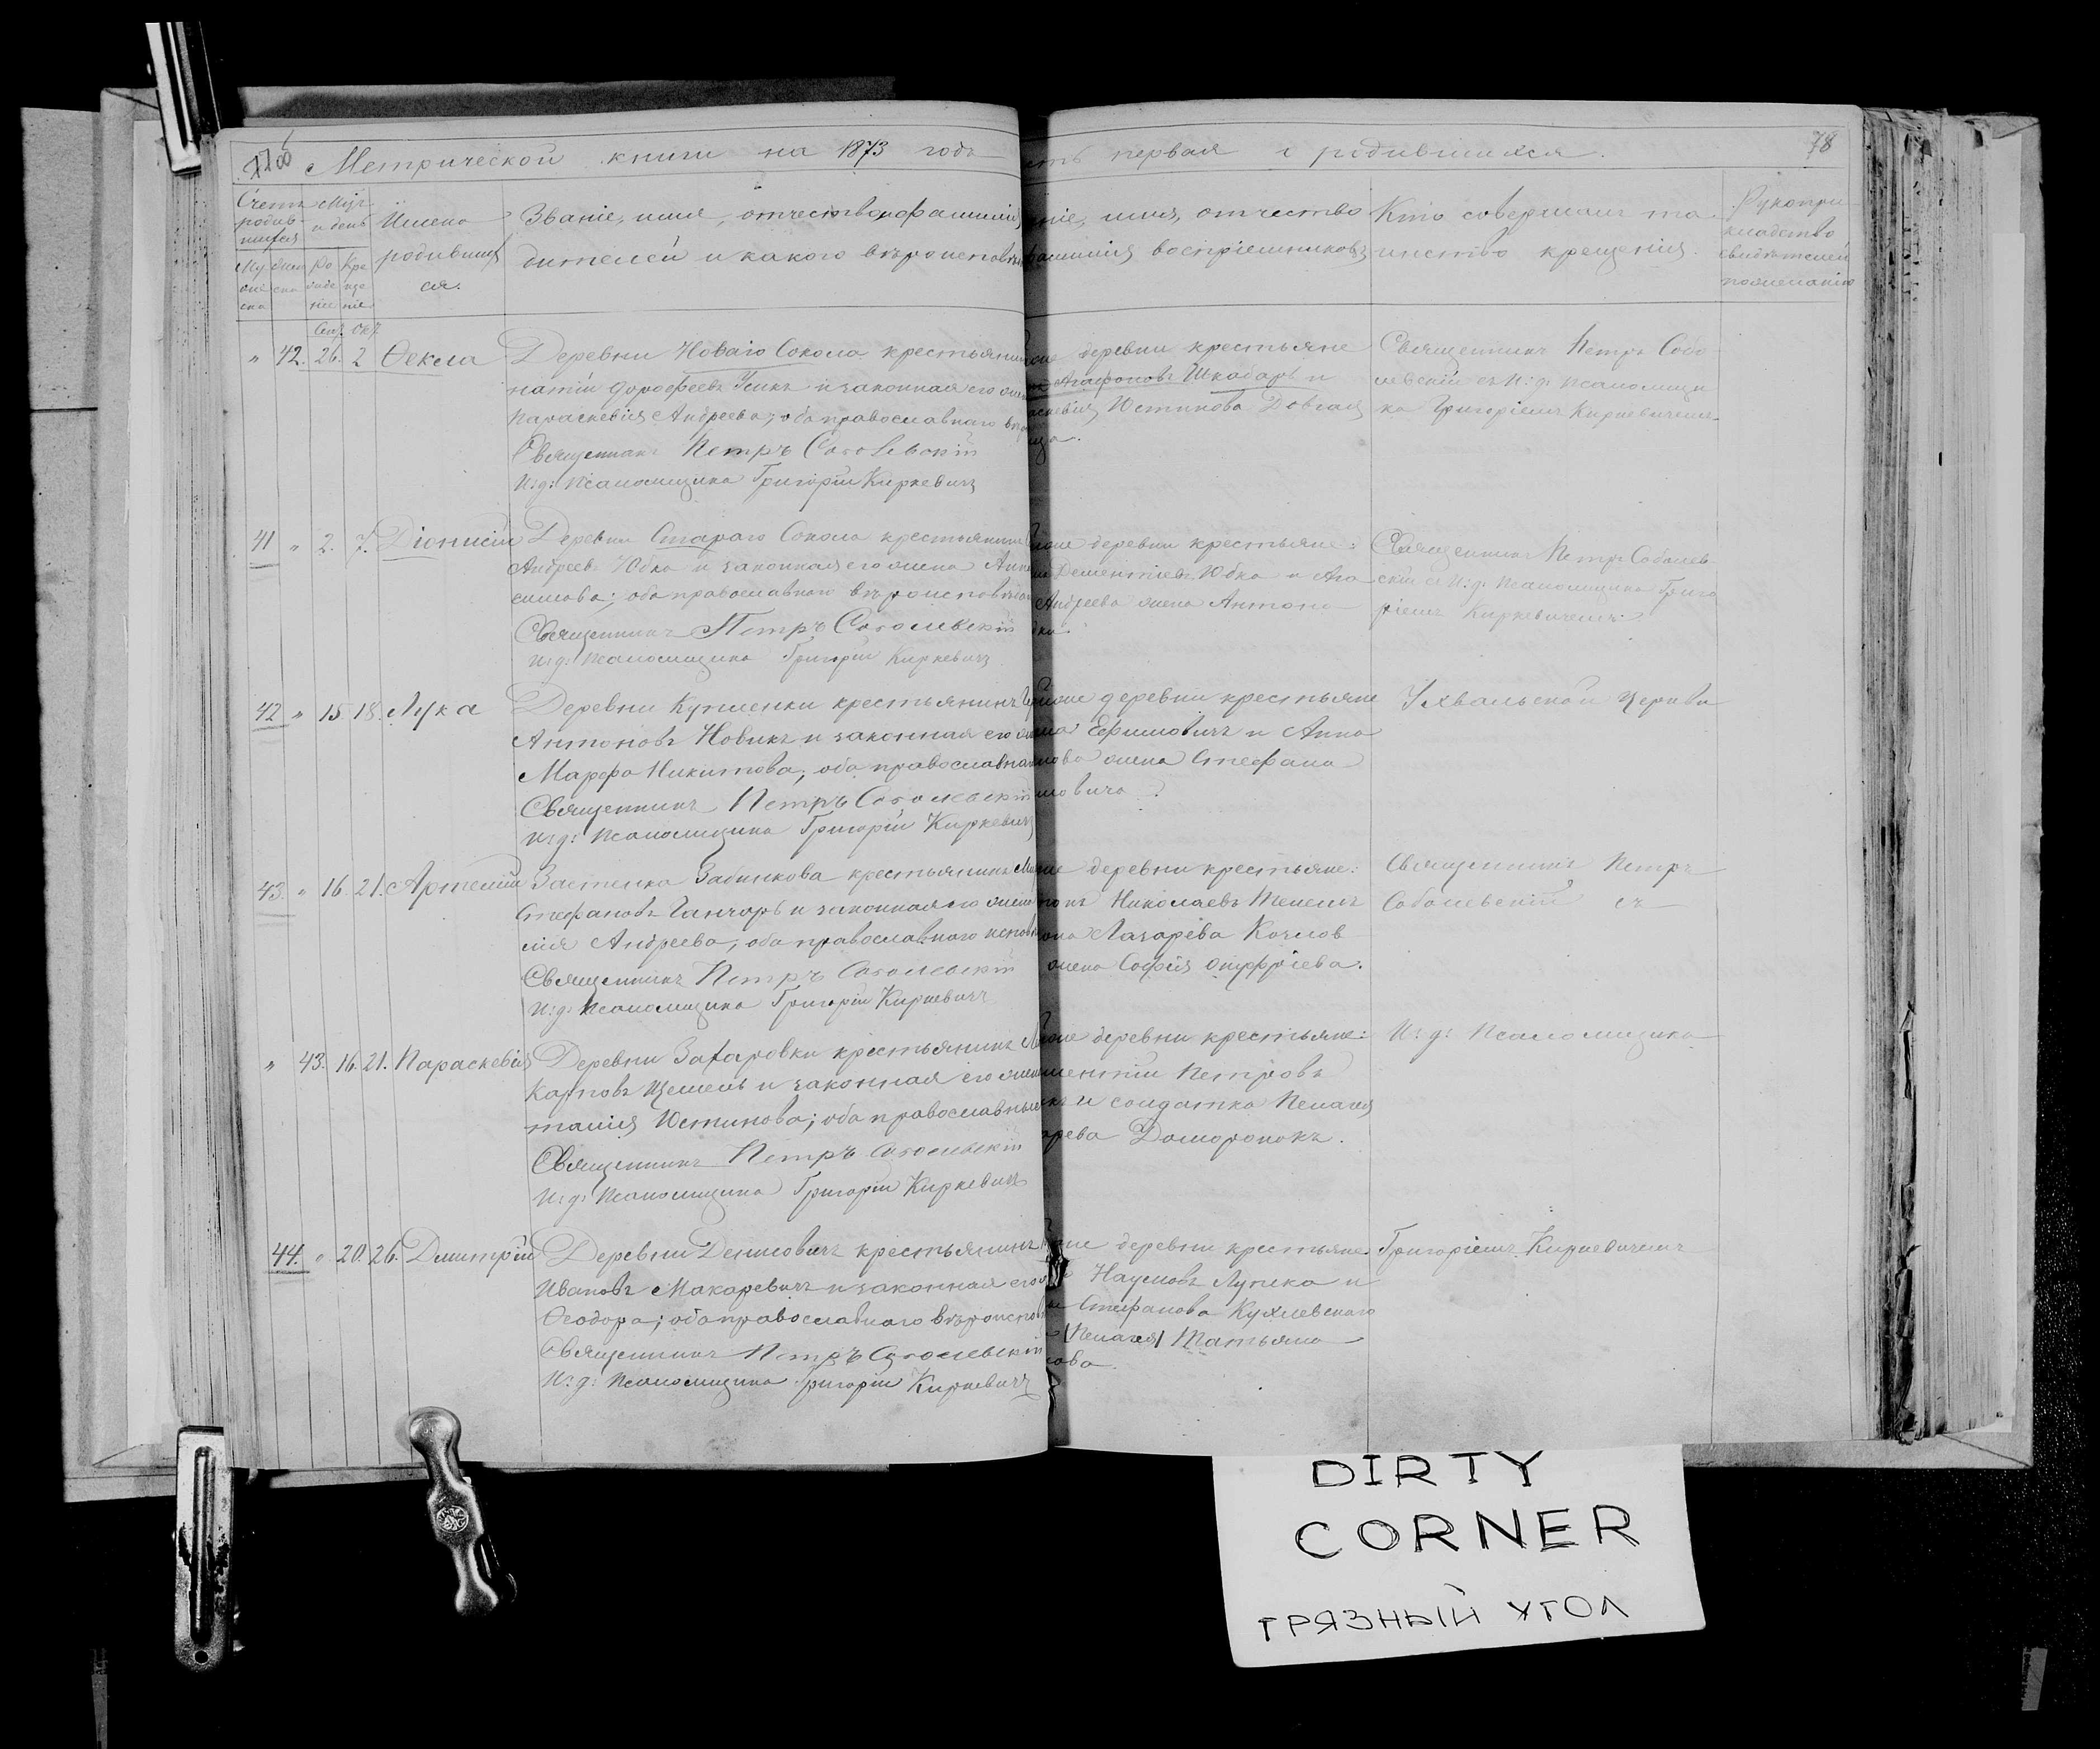 Метрической книги на 1873 годъ
сть первая о родившихся.
78
Счетъ родив-шихся
Мѣс. и день
Имена родившихся.
Званіе, имя, отчество и фамилія
дителей и какого вѣроисповѣ
ніе, имя, отчество
фамилія воспріемниковъ
Кто совершалъ та-
инство крещенія.
Рукопри
кладство
свидѣтелей
по желанію
Му
жес
ска
Жен
ска
Ро
жде
ніе
Кре
ще
ніе.
Сен. Окт.
" 42. 26. 2 Ѳекла
Деревни Новаго Сокола крестьянин
натій Дорофеевъ Усикъ и законная его жен
Параскевія Андреева; оба православнаго вѣро
Священникъ Петръ Соболевскій
И. д. Псаломщика Григорій Киркевичъ
деревни крестьяне
Агафоновъ Шкабаръ и
аскевія Юстинова Довгая
ица.
Священникъ Петръ Собо
левскій съ И. д. Псаломщи
ка Григоріемъ Киркевичемъ.
41 " 2. 7. Діонисій
Деревни Стараго Сокола крестьянинъ
Андреевъ Юбко и законная его жена Анн
симова; оба православнаго вѣроисповѣдан
Священникъ Петръ Соболевскій
И. д. Псаломщика Григорій Киркевичъ
тоже деревни крестьяне:
Дементіевъ Юбко и Ага
Андреева жена Антона
бка.
Священникъ Петръ Соболев-
скій съ И. д. Псаломщика Григо
ріемъ Киркевичемъ.
42 " 15. 18. Лука
Деревни Купленки крестьянинъ
Антоновъ Новикъ и законная его жена
Марфа Никитова; оба православна
Священникъ Петръ Соболевскій
И. д. Псаломщика Григорій Киркевичъ
тоже деревни крестьяне
Ефимовичъ и Анна
нова жена Стефана
мовича.
Ухвальской церкви
43. " 16. 21. Артемій
Застенка Забилкова крестьянинъ
Стефановъ Ганчаръ и законная его жена
лія Андреева; оба православнаго исповѣ
Священникъ Петръ Соболевскій
И. д. Псаломщика Григорій Киркевичъ
деревни крестьяне:
Николаевъ
Лазарева Козлов
жена Софія Онуфріева.
Священникъ Петръ
Соболевскій съ
" 43. 16. 21. Параскевія
Деревни Захаровки крестьянинъ
Карповъ и законная его жена
талія Юстинова; оба православные
Священникъ Петръ Соболевскій
И. д. Псаломщика Григорій Киркевичъ
тоже деревни крестьяне:
ментій Петровъ
и солдатка Пелагея
арева Доморонокъ.
И. д. Псаломщика
44. " 20. 26. Димитрій
Деревни Денисовичъ крестьянинъ
Ивановъ Макаревичъ и законная его
Ѳеодора; оба православнаго вѣроиспов
Священникъ Петръ Соболевскій
И. д. Псаломщика Григорій Киркевичъ
деревни крестьяне.
Наумовъ Лупека и
Стефанова Кухлевскаго
(Пелагея) Татьяна
ова.
Григоріемъ Киркевичемъ
DIRTY
CORNER
ГРЯЗНЫЙ УГОЛ